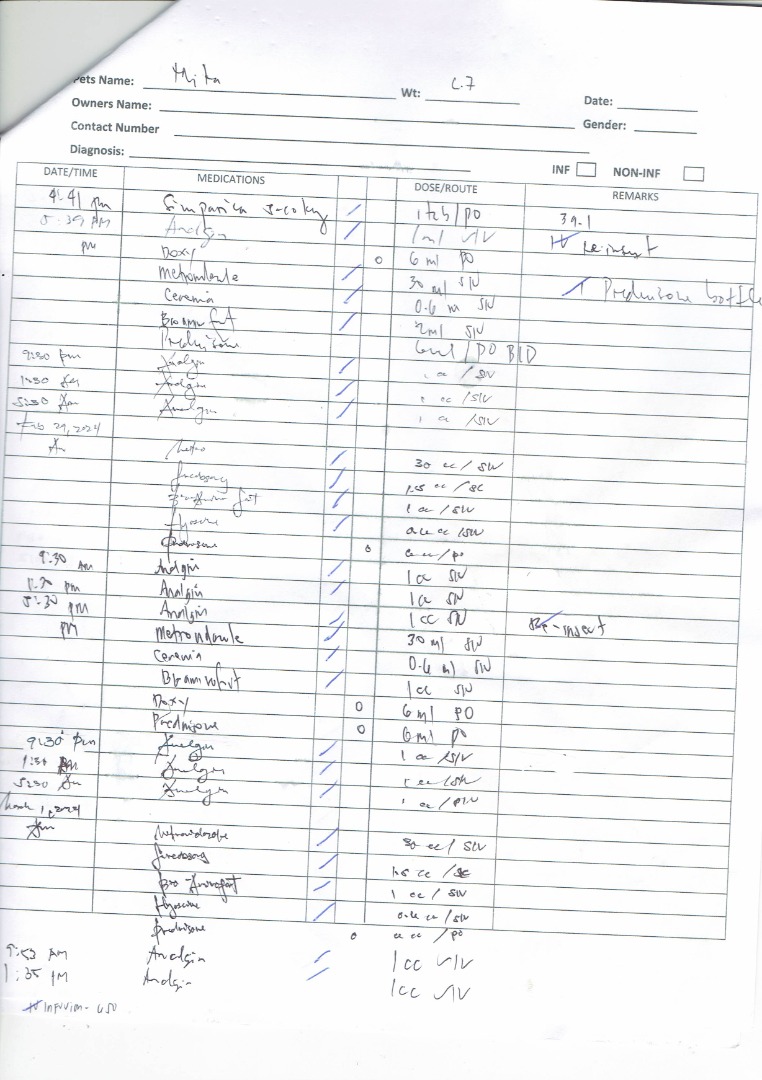 Pets Name:
Wt: 6.7
Date:
Owners Name:
Gender:
Contact Number
Diagnosis:
INF NON-INF
DATE/TIME MEDICATIONS DOSE/ROUTE REMARKS
4:41 pm Simparica 5-10kg / 1 tab/PO 39.1
5:39 PM Analgin / 1ml SIV IV Re insert
pm Doxy o 6 ml PO
Metronidazole / 30 ml SIV 1 Prednisone bottle
Cerenia / 0.6 ml SIV
/ 2ml SIV
Prednisone 6ml / PO BID
9:30 pm Analgin / 1 cc / SIV
1:30 Am Analgin / 1 cc / SIV
5:30 Am Analgin / 1 cc / SIV
Feb 29, 2024
Am Metro / 30 cc / SIV
/ 1.5 cc / SC
/ 1 cc / SIV
Hyoscine / cc / SIV
Prednisone o cc / PO
9:30 AM Analgin / 1cc SIV
1:30 pm Analgin / 1cc SIV
5:30 pm Analgin / 1cc SIV Re-insert
pm Metronidazole / 30 ml SIV
Cerenia 0.6 ml SIV
/ 1cc SIV
Doxy o 6 ml PO
Prednisone o 6ml PO
9:30 pm Analgin / 1 cc / SIV
1:30 Am Analgin / 1 cc / SIV
5:30 Am Analgin / 1 cc / SIV
March 1, 2024
Am Metronidazole / 30 cc / SIV
/ 1.5 cc / SC
/ 1 cc / SIV
Hyoscine / 0.6 cc / SIV
Prednisone o cc / PO
9:53 AM Analgin / 1cc SIV
1:35 PM Analgin / 1cc SIV